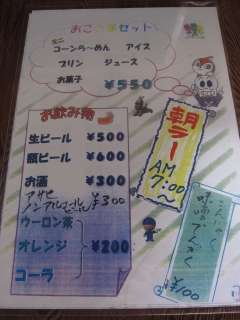 おこ様セット
ミニ
コーンら～めん アイス
プリン ジュース
お菓子 ¥550
お飲み物
生ビール ¥500
瓶ビール ¥600
お酒 ¥300
アサヒ
ノンアルコールビール ¥300
ウーロン茶
オレンジ ¥200
コーラ
朝ラー
AM
7:00～
こんにゃく
味噌でんがく
¥100